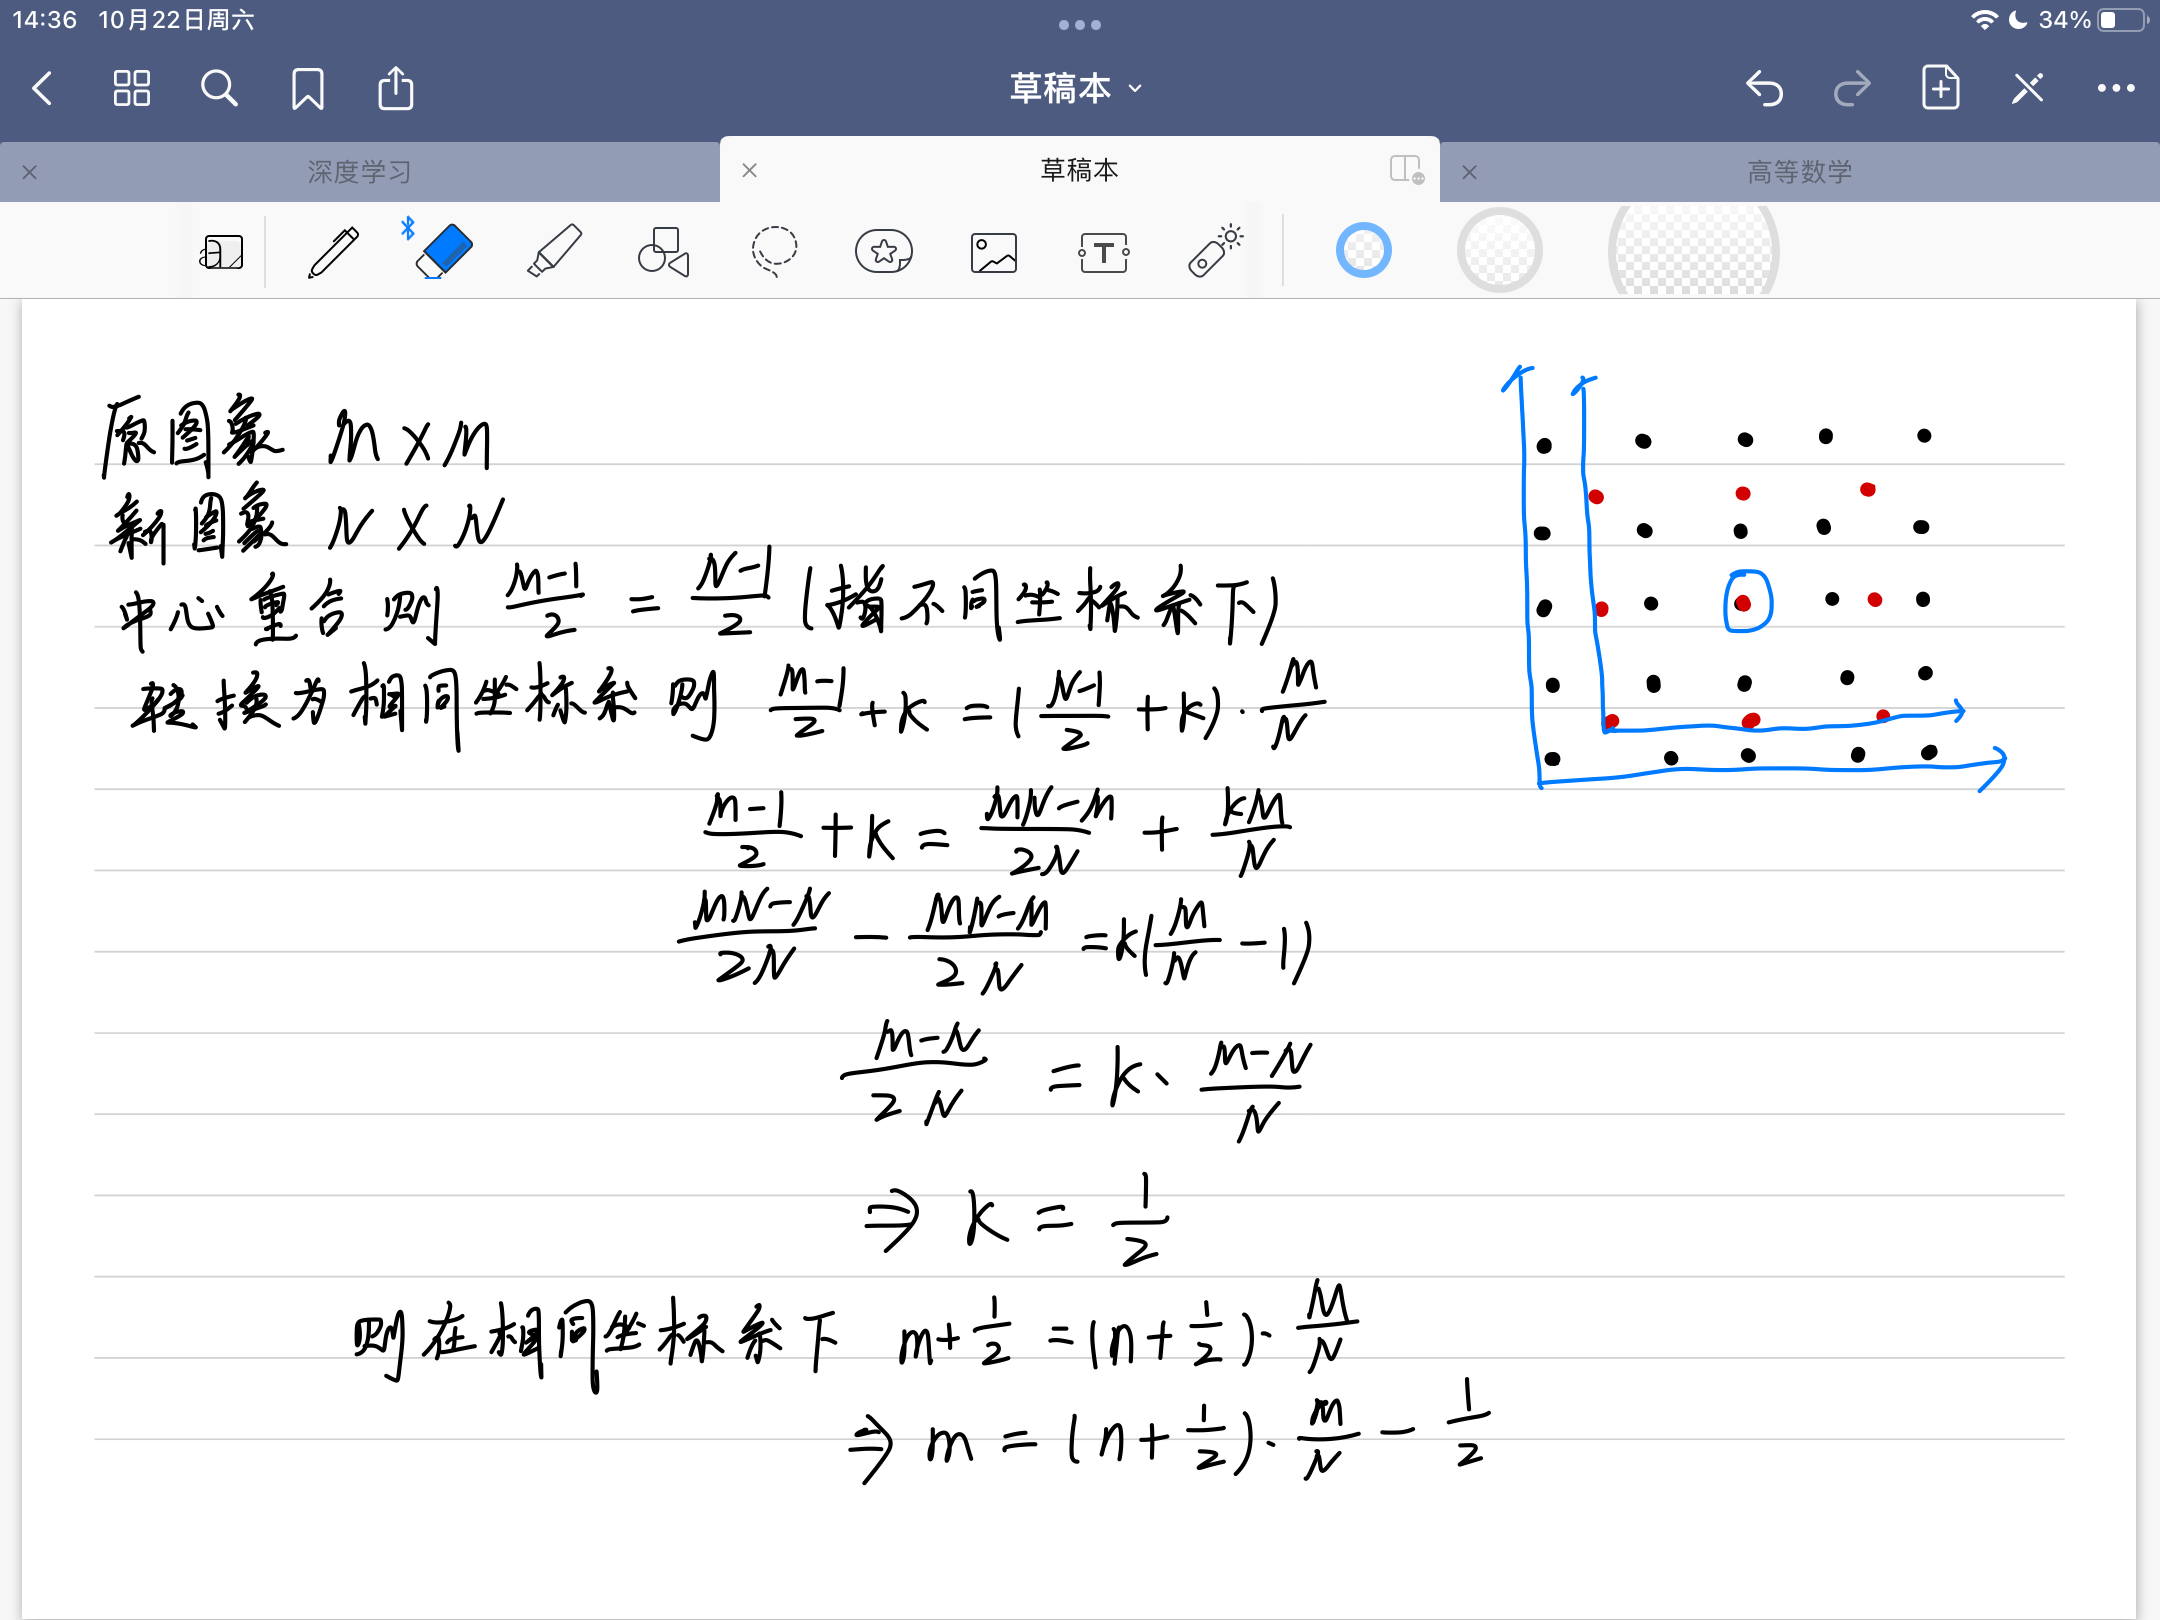 14:36 10月22日周六
34%
草稿本
深度学习
草稿本
高等数学
原图象 M×M
新图象 N×N
中心重合 则 (M-1)/2 = (N-1)/2 (指不同坐标系下)
转换为相同坐标系 则 (M-1)/2 + k = ((N-1)/2 + k)·M/N
(M-1)/2 + k = (MN-M)/2N + kM/N
(MN-N)/2N - (MN-M)/2N = k(M/N - 1)
(M-N)/2N = k、(M-N)/N
⇒ k = 1/2
则在相同坐标系下 m+1/2 = (n+1/2)·M/N
⇒ m = (n+1/2)·M/N - 1/2